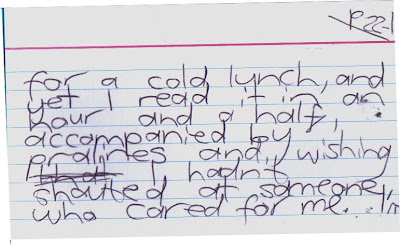 P.22-1
for a cold lunch, and
yet I read it in an
hour and a half,
accompanied by
pralines and, wishing
I hadnt
shouted at someone,
who cared for me. I'm